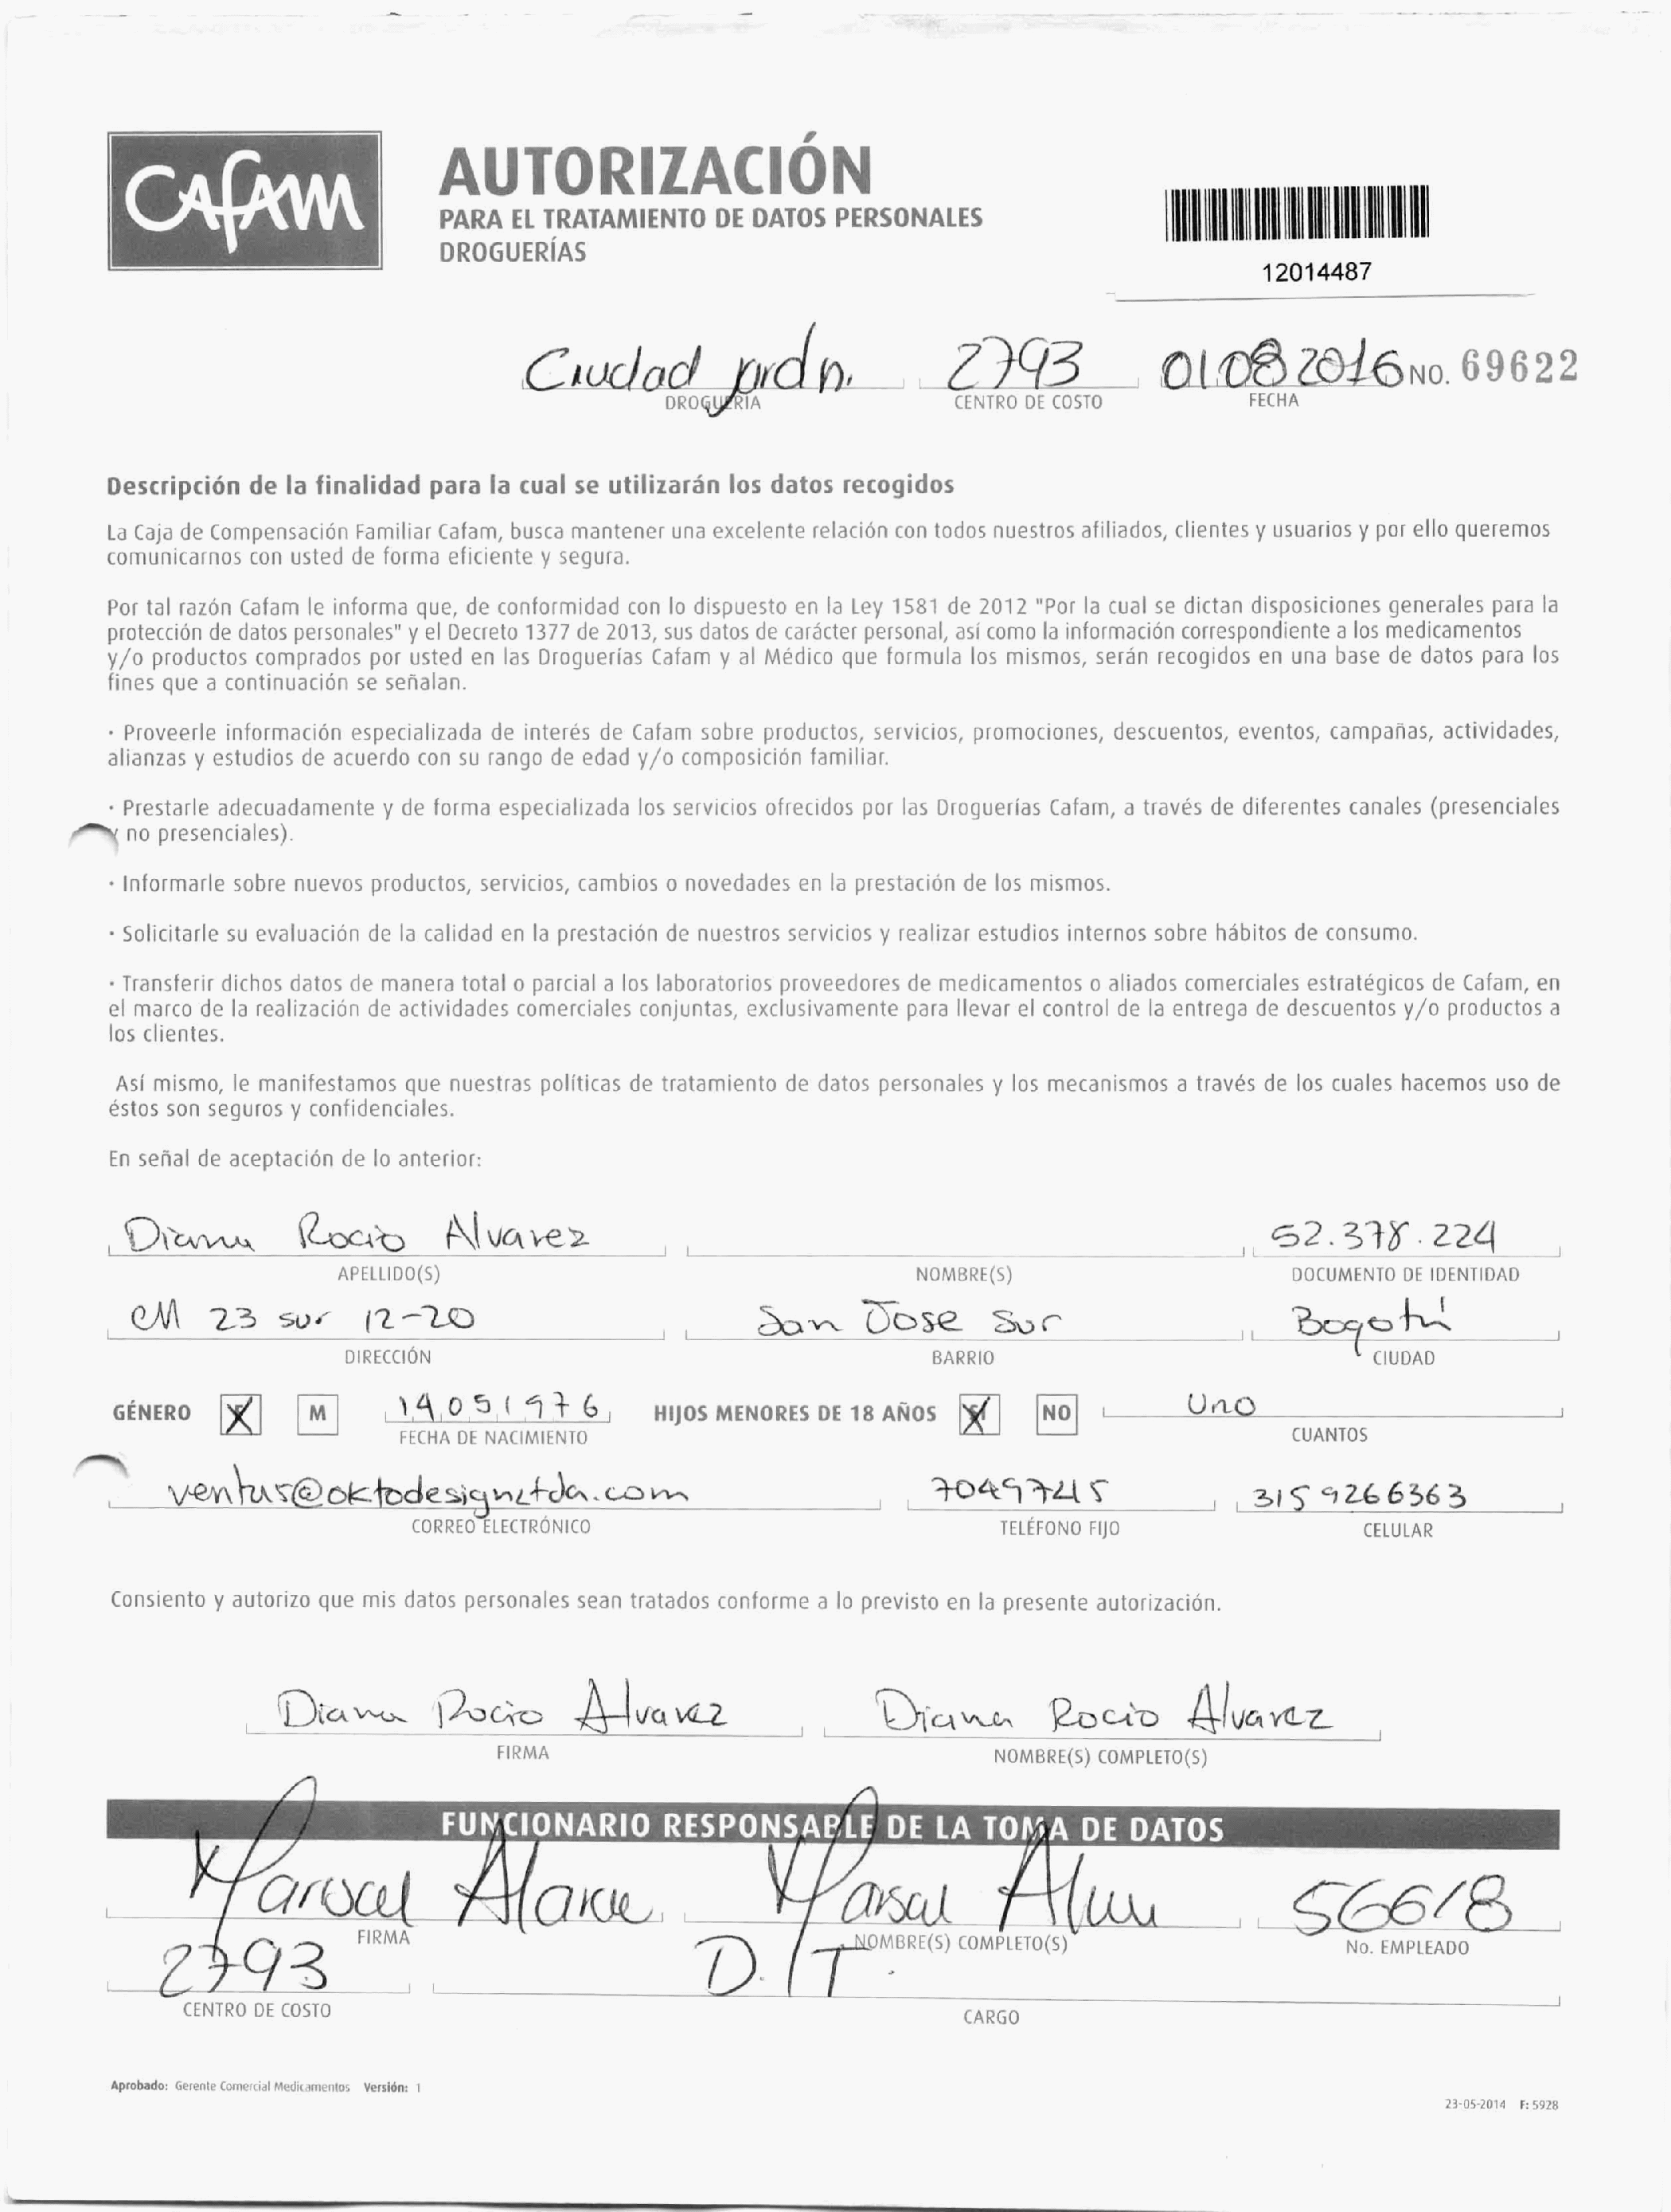 Cafam
AUTORIZACIÓN
PARA EL TRATAMIENTO DE DATOS PERSONALES
DROGUERÍAS
12014487
Ciudad jardn. 2793 01082016 NO. 69622
DROGUERÍA CENTRO DE COSTO FECHA
Descripción de la finalidad para la cual se utilizarán los datos recogidos
La Caja de Compensación Familiar Cafam, busca mantener una excelente relación con todos nuestros afiliados, clientes y usuarios y por ello queremos
comunicarnos con usted de forma eficiente y segura.
Por tal razón Cafam le informa que, de conformidad con lo dispuesto en la Ley 1581 de 2012 "Por la cual se dictan disposiciones generales para la
protección de datos personales" y el Decreto 1377 de 2013, sus datos de carácter personal, así como la información correspondiente a los medicamentos
y/o productos comprados por usted en las Droguerías Cafam y al Médico que formula los mismos, serán recogidos en una base de datos para los
fines que a continuación se señalan.
· Proveerle información especializada de interés de Cafam sobre productos, servicios, promociones, descuentos, eventos, campañas, actividades,
alianzas y estudios de acuerdo con su rango de edad y/o composición familiar.
· Prestarle adecuadamente y de forma especializada los servicios ofrecidos por las Droguerías Cafam, a través de diferentes canales (presenciales
y no presenciales).
· Informarle sobre nuevos productos, servicios, cambios o novedades en la prestación de los mismos.
· Solicitarle su evaluación de la calidad en la prestación de nuestros servicios y realizar estudios internos sobre hábitos de consumo.
· Transferir dichos datos de manera total o parcial a los laboratorios proveedores de medicamentos o aliados comerciales estratégicos de Cafam, en
el marco de la realización de actividades comerciales conjuntas, exclusivamente para llevar el control de la entrega de descuentos y/o productos a
los clientes.
Así mismo, le manifestamos que nuestras políticas de tratamiento de datos personales y los mecanismos a través de los cuales hacemos uso de
éstos son seguros y confidenciales.
En señal de aceptación de lo anterior:
Diana Rocio Alvarez 52.378.224
APELLIDO(S) NOMBRE(S) DOCUMENTO DE IDENTIDAD
Cll 23 sur 12-20 San Jose Sur Bogotá
DIRECCIÓN BARRIO CIUDAD
GÉNERO X M 14051976 HIJOS MENORES DE 18 AÑOS X NO Uno
FECHA DE NACIMIENTO CUANTOS
ventas@oktodesignltda.com 70497415 3159266363
CORREO ELECTRÓNICO TELÉFONO FIJO CELULAR
Consiento y autorizo que mis datos personales sean tratados conforme a lo previsto en la presente autorización.
Diana Rocio Alvarez Diana Rocio Alvarez
FIRMA NOMBRE(S) COMPLETO(S)
FUNCIONARIO RESPONSABLE DE LA TOMA DE DATOS
56618
FIRMA NOMBRE(S) COMPLETO(S) No. EMPLEADO
2793 D.T.
CENTRO DE COSTO CARGO
Aprobado: Gerente Comercial Medicamentos Versión: 1
23-05-2014 F: 5928